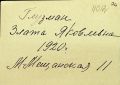 Глизман,
Злата Яковлевна
1920г.
М. Мещанская 11